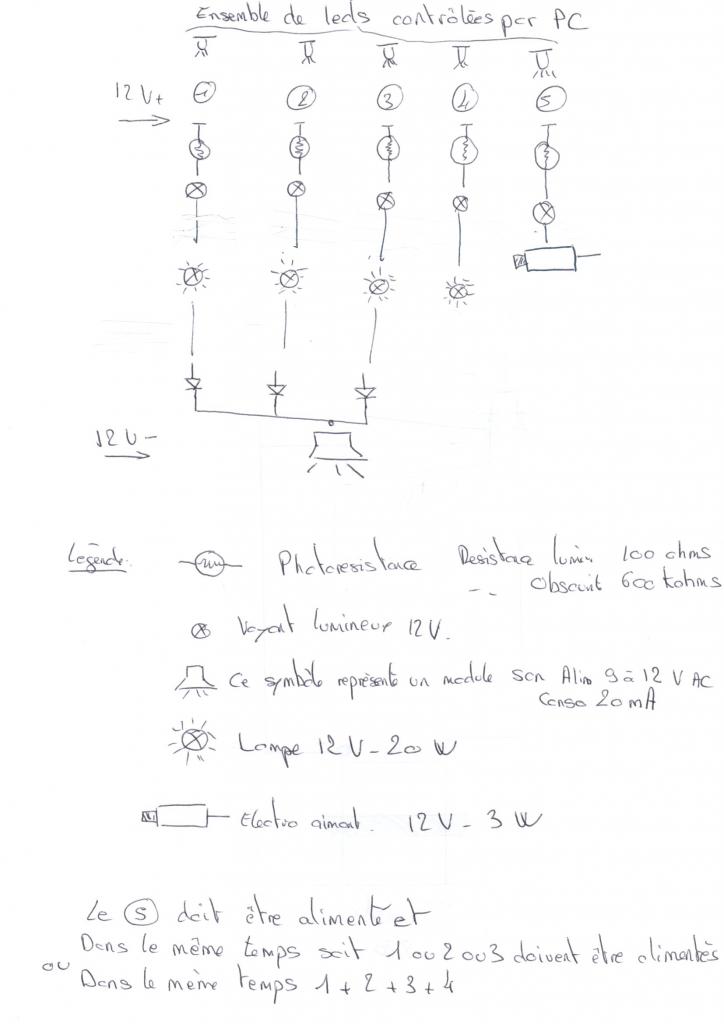 Ensemble de leds contrôlées par PC
12V+ 1 2 3 4 5
12V-
Légende: Photoresistance Resistance lumin 100 ohms
-- Obscurit 600 kohms
Voyant lumineux 12V.
Ce symbôle représente un module son Alim 9 à 12 V AC
Conso 20 mA
Lampe 12V-20 W
Electro aimant. 12V - 3 W
Le 5 doit être alimenté et
Dans le même temps soit 1 ou 2 ou 3 doivent être alimentés
ou Dans le même temps 1 + 2 + 3 + 4